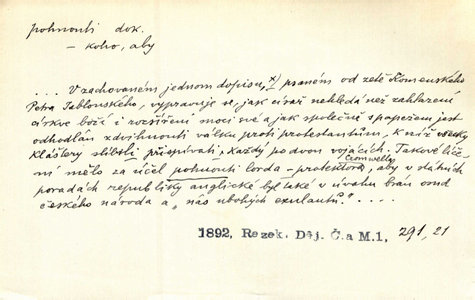 pohnouti dok.
— koho, aby
.... V zachovaném jednom dopisu, x) psaném od zetě Komenského
Petra Jablonského, vypravuje se, jak císař nehledá než zahlazení
církve boží i rozšíření moci své a jak společně s papežem jest
odhodlán zdvihnouti válku proti protestantům, k níž všecky
kláštery slíbili přispívati, každý po dvou vojácích. Takové líče-
ní mělo za účel pohnouti lorda-protektora Cromwella, aby v státních
poradách republiky anglické byl také v úvahu brán osud
českého národa a „nás ubohých exulantů“. ....
1892, Rezek. Děj. Č. a M. 1, 291, 21